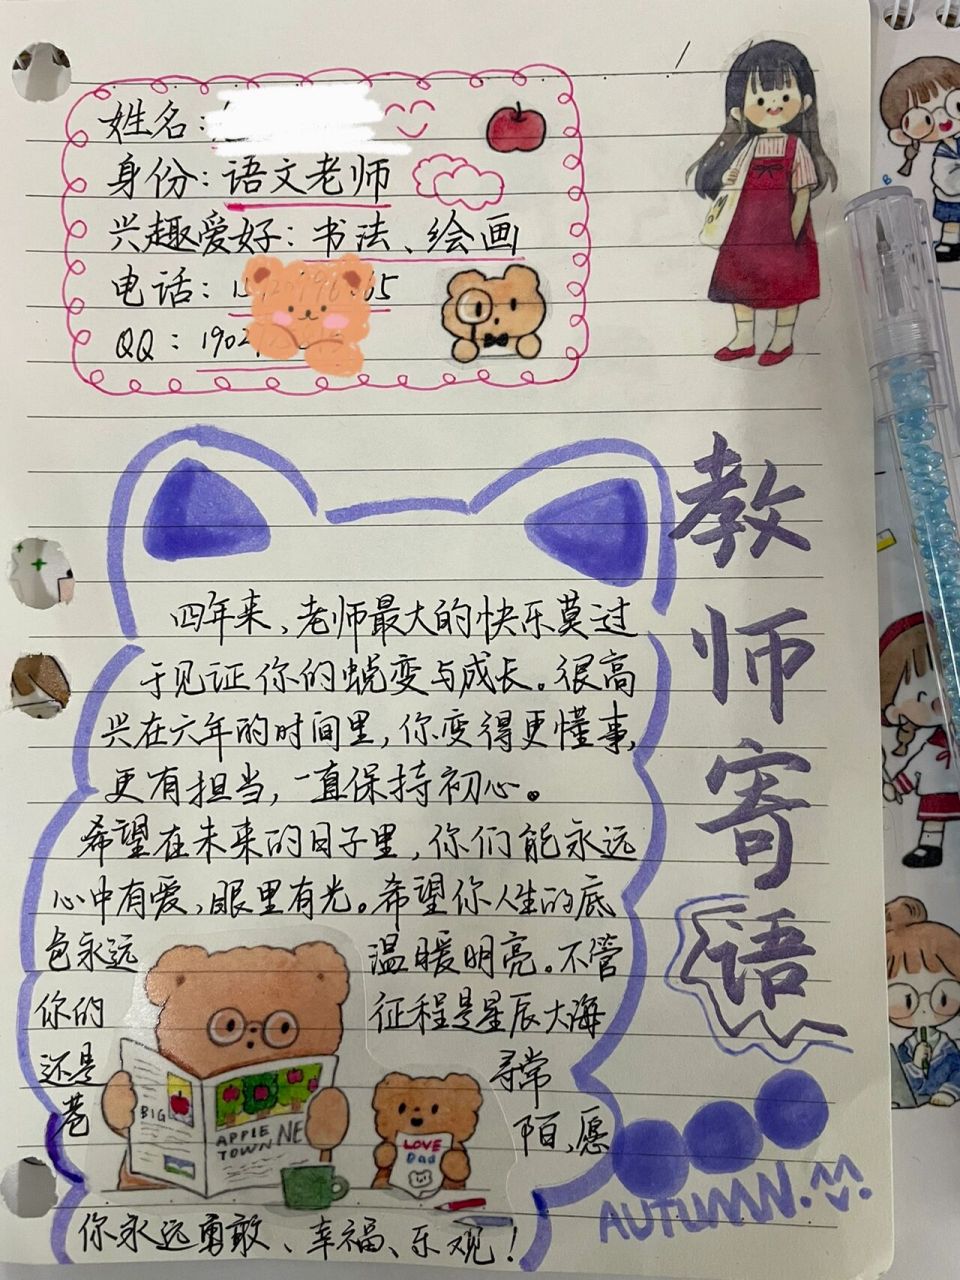 姓名:
身份:语文老师
兴趣爱好:书法、绘画
电话:
QQ:
教师寄语
四年来、老师最大的快乐莫过
于见证你的蜕变与成长。很高
兴在六年的时间里,你变得更懂事,
更有担当,一直保持初心。
希望在未来的日子里,你们能永远
心中有爱,眼里有光。希望你人生的底
色永远 温暖明亮。不管
你的 征程是星辰大海
还是 寻常
巷 陌,愿
你永远勇敢、幸福、乐观!
BIG
APPLE NE
TOWN
LOVE
Dad
AUTUMN.